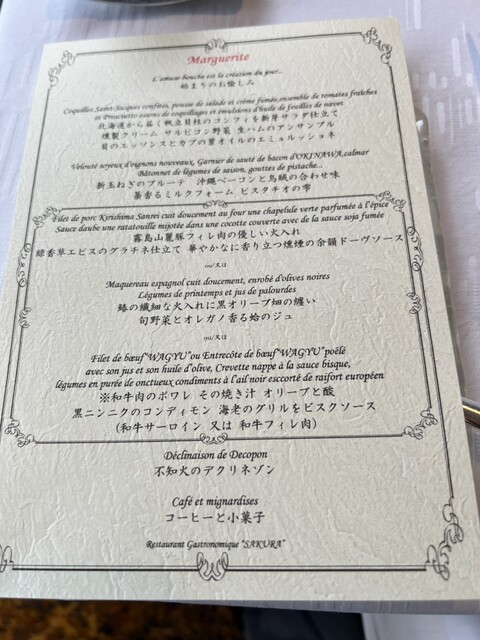 Marguerite
L'amuse-bouche est la création du jour...
始まりのお愉しみ
Coquilles Saint-Jacques confites, pousse de salade et crème fumée,ensemble de tomates fraîches
et Prosciutto essens de coquillages et émulsions d'huile de feuilles de navet
北海道から届く帆立貝柱のコンフィを新芽サラダ仕立て
燻製クリーム サルピコン野菜 生ハムのアンサンブル
貝のエッソンスとカブの葉オイルのエミュルッショネ
Velouté soyeux d'oignons nouveaux, Garnier de sauté de bacon d'OKINAWA,calmar
Bâtonnet de légumes de saison, gouttes de pistache...
新玉ねぎのブルーテ 沖縄ベーコンと烏賊の合わせ味
薫香るミルクフォーム ピスタチオの雫
Filet de porc Kirishima Sanrei cuit doucement au four une chapelure verte parfumée à l'épice
Sauce daube une ratatouille mijotée dans une cocotte couverte avec de la sauce soja fumée
霧島山麓豚フィレ肉の優しい火入れ
緑香草エピスのグラチネ仕立て 華やかなに香り立つ燻煙の余韻ドーヴソース
ou/又は
Maquereau espagnol cuit doucement, enrobé d'olives noires
Légumes de printemps et jus de palourdes
鰆の繊細な火入れに黒オリーブ畑の纏い
旬野菜とオレガノ香る蛤のジュ
ou/又は
Filet de bœuf"WAGYU"ou Entrecôte de bœuf"WAGYU"poêlé
avec son jus et son huile d'olive, Crevette nappe à la sauce bisque,
légumes en purée de onctueux condiments à l'ail noir esccorté de raifort européen
※和牛肉のポワレ その焼き汁 オリーブと酸
黒ニンニクのコンディモン 海老のグリルをビスクソース
(和牛サーロイン 又は 和牛フィレ肉)
Déclinaison de Decopon
不知火のデクリネゾン
Café et mignardises
コーヒーと小菓子
Restaurant Gastronomique "SAKURA"